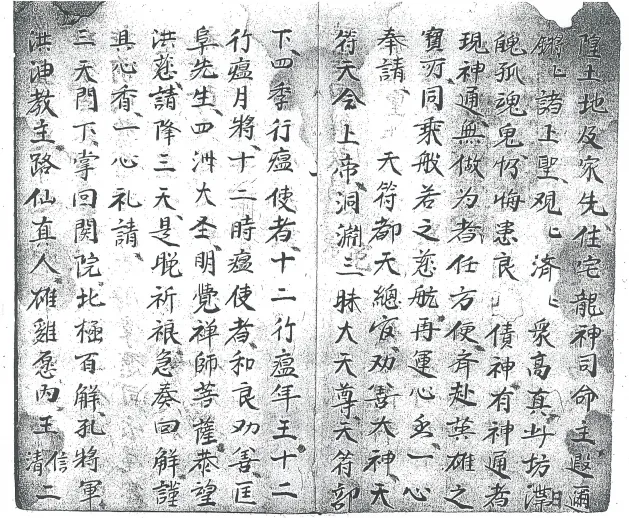 陰土地及家先住宅龍神司命主殿通
鏘上諸上聖覌上済上衆高真此坊潭
醜孤魂鬼恠悔患良 債神有神通者
現神通無做为者任方便齐赴英雄之
寳可同乘般若之慈航再運心丞一心
奉請 天符都天總官劝善大神天
符天令上帝洞渊三昧大天尊天符部
下四季行瘟使者十二行瘟年王十二
行瘟月將十二時瘟使者和良劝善匡
阜先生四洲大圣明覺禅師菩薩恭望
洪慈請降三天是脱祈禳急奏回解謹
具心香一心礼請
三天門下掌回関院北極百解孔將軍
洪油教主路仙真人雄雞愿内王信清二